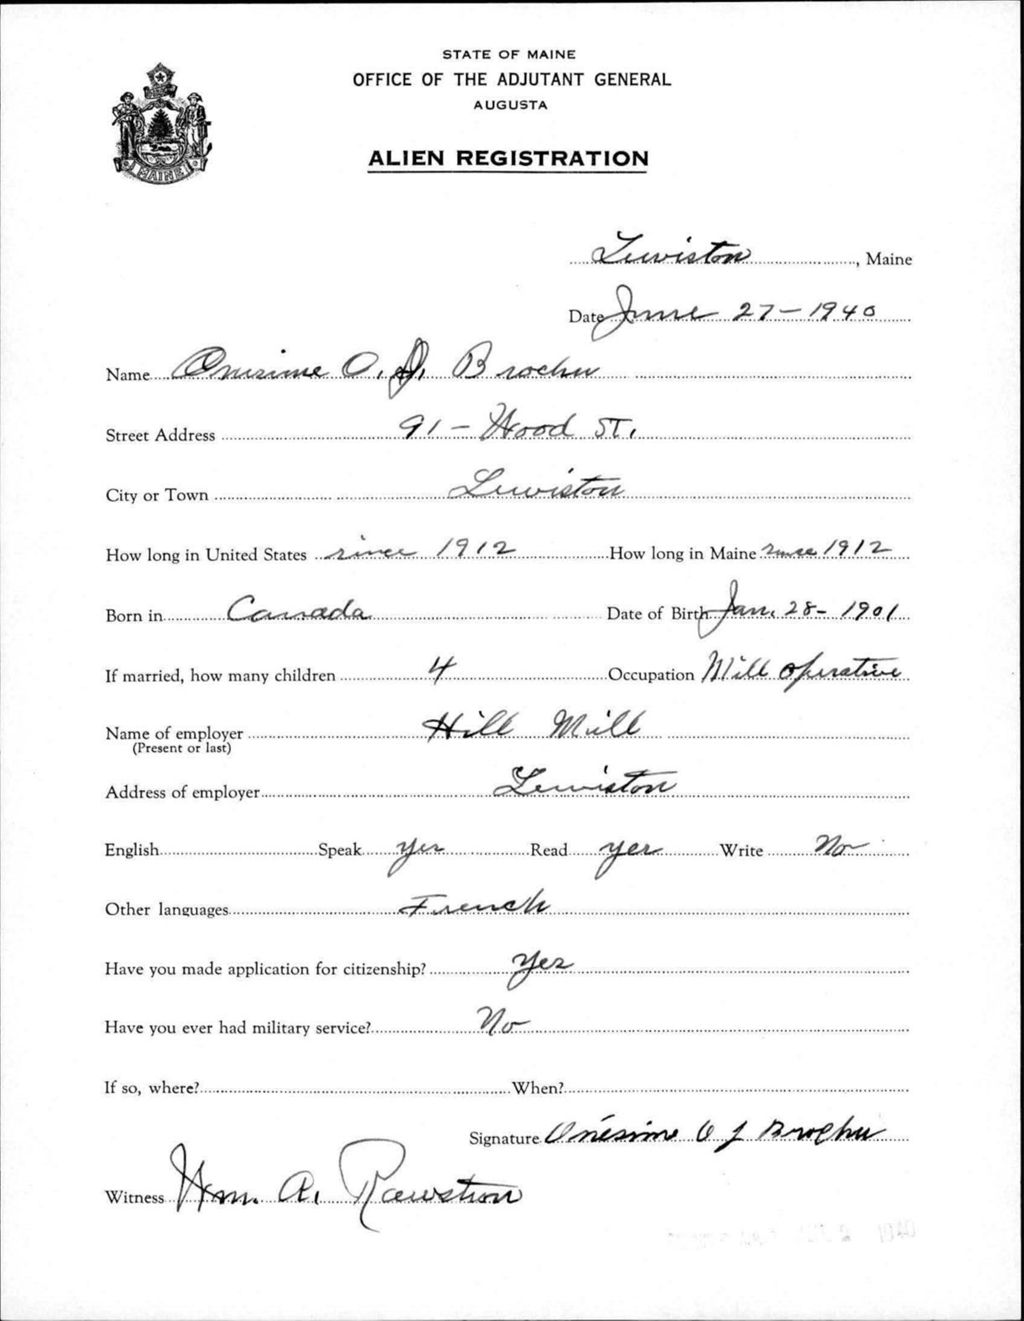 STATE OF MAINE
OFFICE OF THE ADJUTANT GENERAL
AUGUSTA
MAINE
ALIEN REGISTRATION
Lewiston, Maine
Date June 27-1940
Name Onesime O. J. Brochu
Street Address 91-Wood ST.
City or Town Lewiston
How long in United States since 1912 How long in Maine since 1912
Born in Canada Date of Birth Jan. 28-1901
If married, how many children 4 Occupation Mill Operative
Name of employer Hill Mill
(Present or last)
Address of employer Lewiston
English Speak yes Read yes Write No
Other languages French
Have you made application for citizenship? Yes
Have you ever had military service? No
If so, where? When?
Signature Onésime O J Brochu
Witness Wm. A. Rawstron